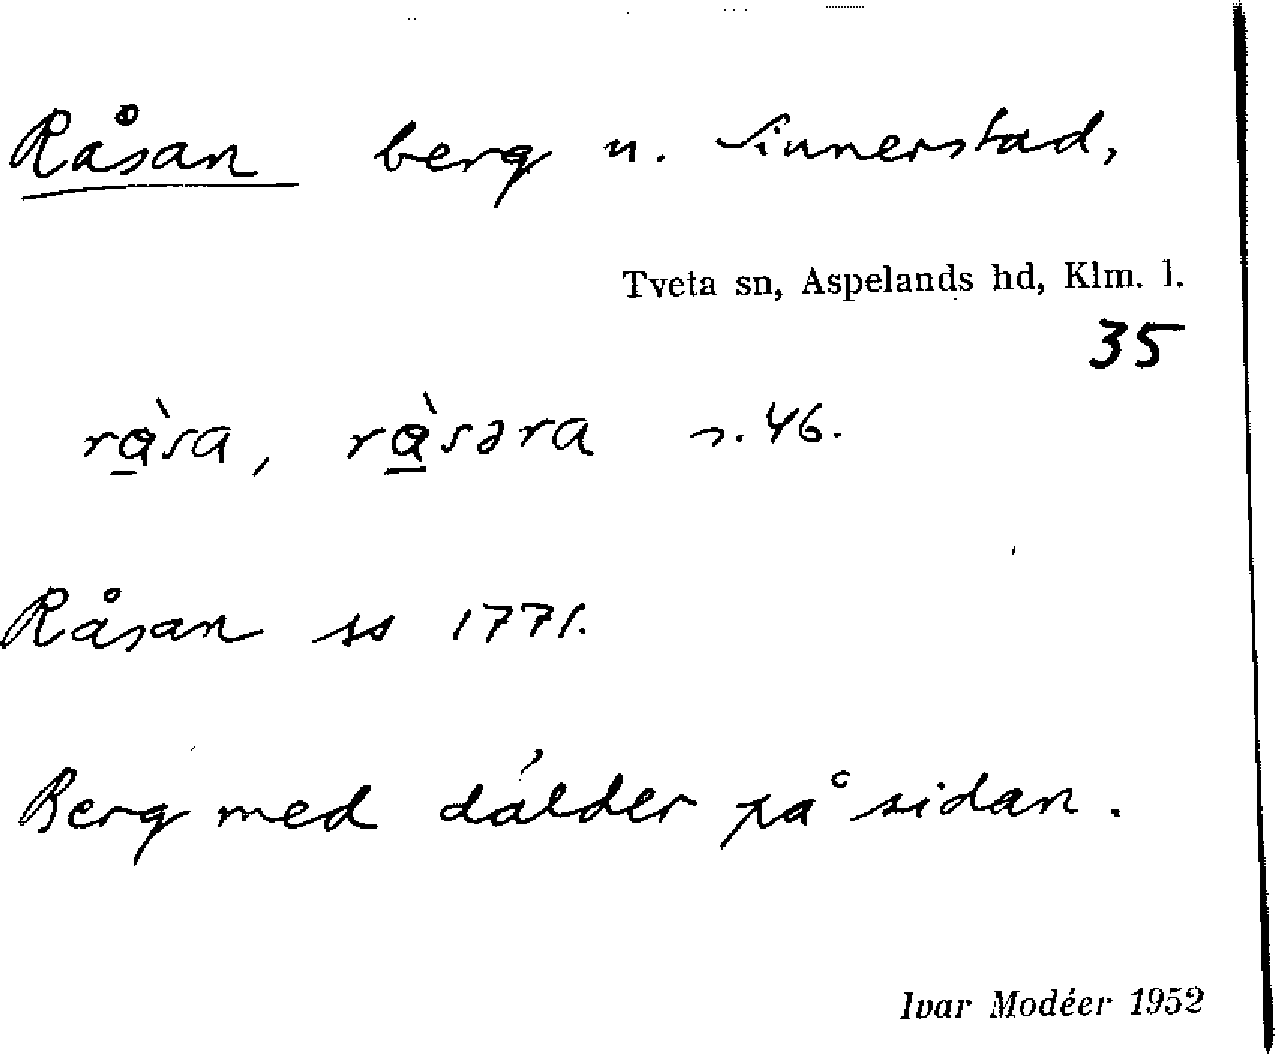 Råsan berg n. Sinnerstad,
Tveta sn, Aspelands hd, Klm. l.
35
rὰ̲sa, rὰ̲səra s. 46.
Råsan ss 1771.
Berg med dálder på sidan.
Ivar Modéer 1952